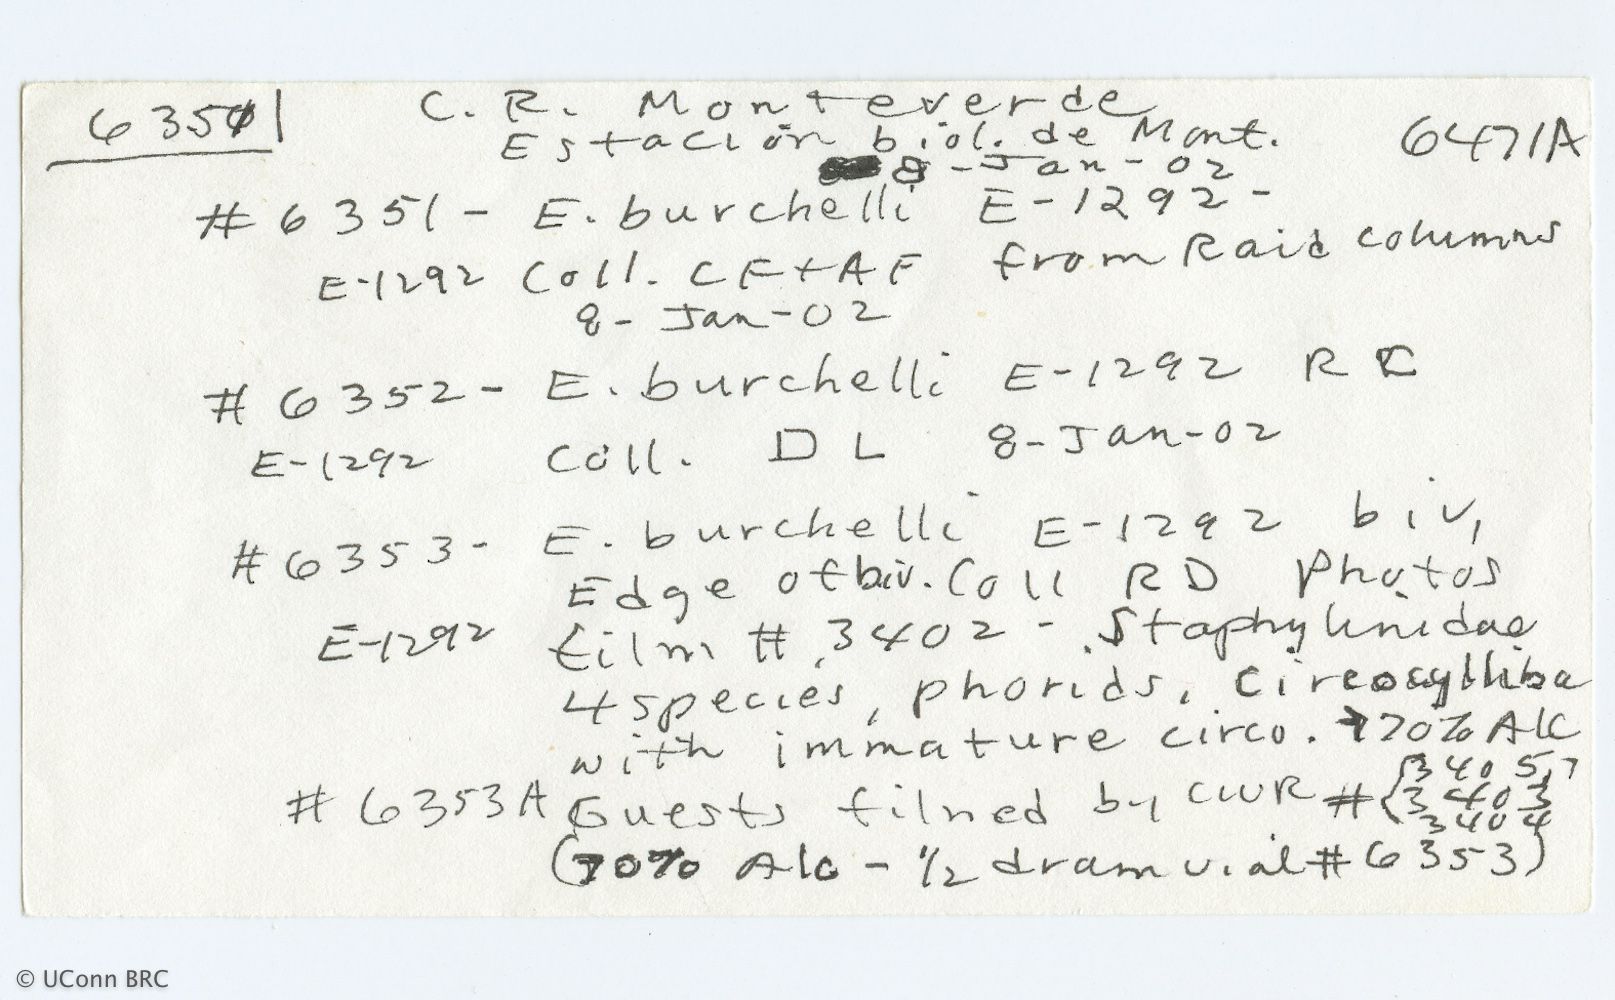 6351 C. R. Monteverde 6471A
Estación biol. de Mont.
8-Jan-02
#6351- E. burchelli E-1292-
E-1292 Coll. CF+AF from Raid columns
8-Jan-02
#6352- E. burchelli E-1292 RC
E-1292 Coll. DL 8-Jan-02
#6353- E. burchelli E-1292 biv,
Edge of biv. Coll RD Photos
E-1292 film #3402 - Staphylinidae
4 species, phorids,
with immature circo. 70% Alc
#6353A Guests filmed by CWR # {3405,
3403
3404
(70% Alc - 1/2 dram vial #6353)
© UConn BRC